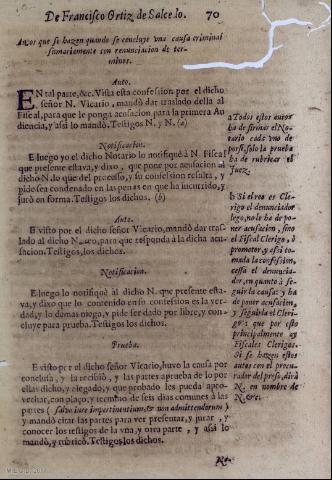 De Francisco Ortiz de Salcedo. 70
Autos que se hazen quando se concluye vna causa criminal
sumariamente con renunciacion de ter-
minos.
Auto.
EN tal parte, &c. Vista esta confession por el dicho
señor N. Vicario, mandò dar traslado della al
Fiscal, para que le ponga acusacion para la primera Au
diencia, y assi lo mandò, Testigos N. y N. (a)
Notificacion.
E luego yo el dicho Notario lo notifiquè à N. Fiscal
que presente estava, y dixo, que pone por acusacion al
dicho N. lo que del processo, y su confession resulta, y
pide sea condenado en las penas en que ha incurrido, y
jurò en forma. Testigos los dichos. (b)
Auto.
E visto por el dicho señor Vicario, mandò dar tras-
lado al dicho para que responda à la dicha acu-
sacion. Testigos, los dichos.
Notificacion.
E luego lo notifiquè al dicho N. que presente esta-
va, y dixo que lo contenido en su confession es la ver-
dad, y lo demas niega, y pide ser dado por libre, y con-
cluye para prueba. Testigos los dichos.
Prueba.
E visto por el dicho señor Vicario, huvo la causa por
conclusa, y la recibiò, y las partes aprueba de lo por
ellas dicho, y alegado, y que probado les pueda apro-
vechar, con plaço, y termino de seis dias comunes à las
partes (salvo iure impertinentium, & non admittendorum)
y mandò citar las partes para ver presentar, y jurar, y
conocer los testigos de la vna, y otra parte, y assi lo
mandò, y rubricò. Testigos los dichos.
a Todos estos autos
ha de firmar el No-
tario cada vno de
por si, solo la prueba
ha de rubricar el
Juez.
b Si el reo es Cle-
rigo el denunciador
lego, no le ha de po-
ner acusacion, sino
el Fiscal Clerigo, ò
promotor, y assi to-
mada la confession,
cessa el denuncia-
dor, en quanto à se-
guir la causa: y ha
de poner acusacion,
y seguirla el Cleri-
go: que por esto
principalmente ay
Fiscales Clerigos.
Si se hazen estos
autos con el procu-
rador del preso, dirà
N. en nombre de
N. &c.